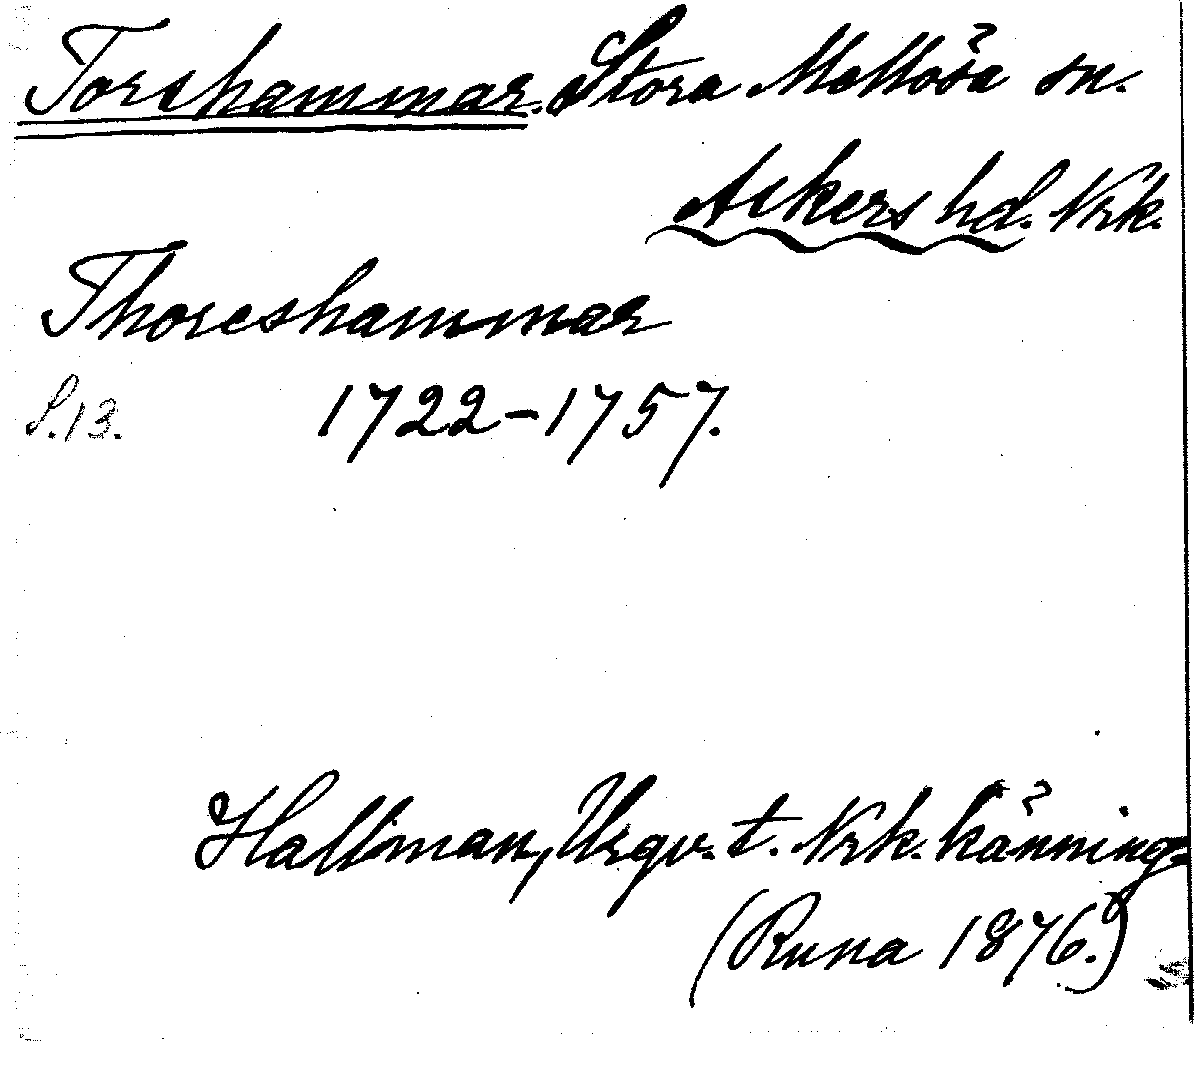 Torshammar. Stora Mellösa sn.
Askers hd. Nrk.
Thoreshammar
S.13. 1722-1757.
Hallman, Ursqv. t. Nrk. känning.
(Runa 1876.)